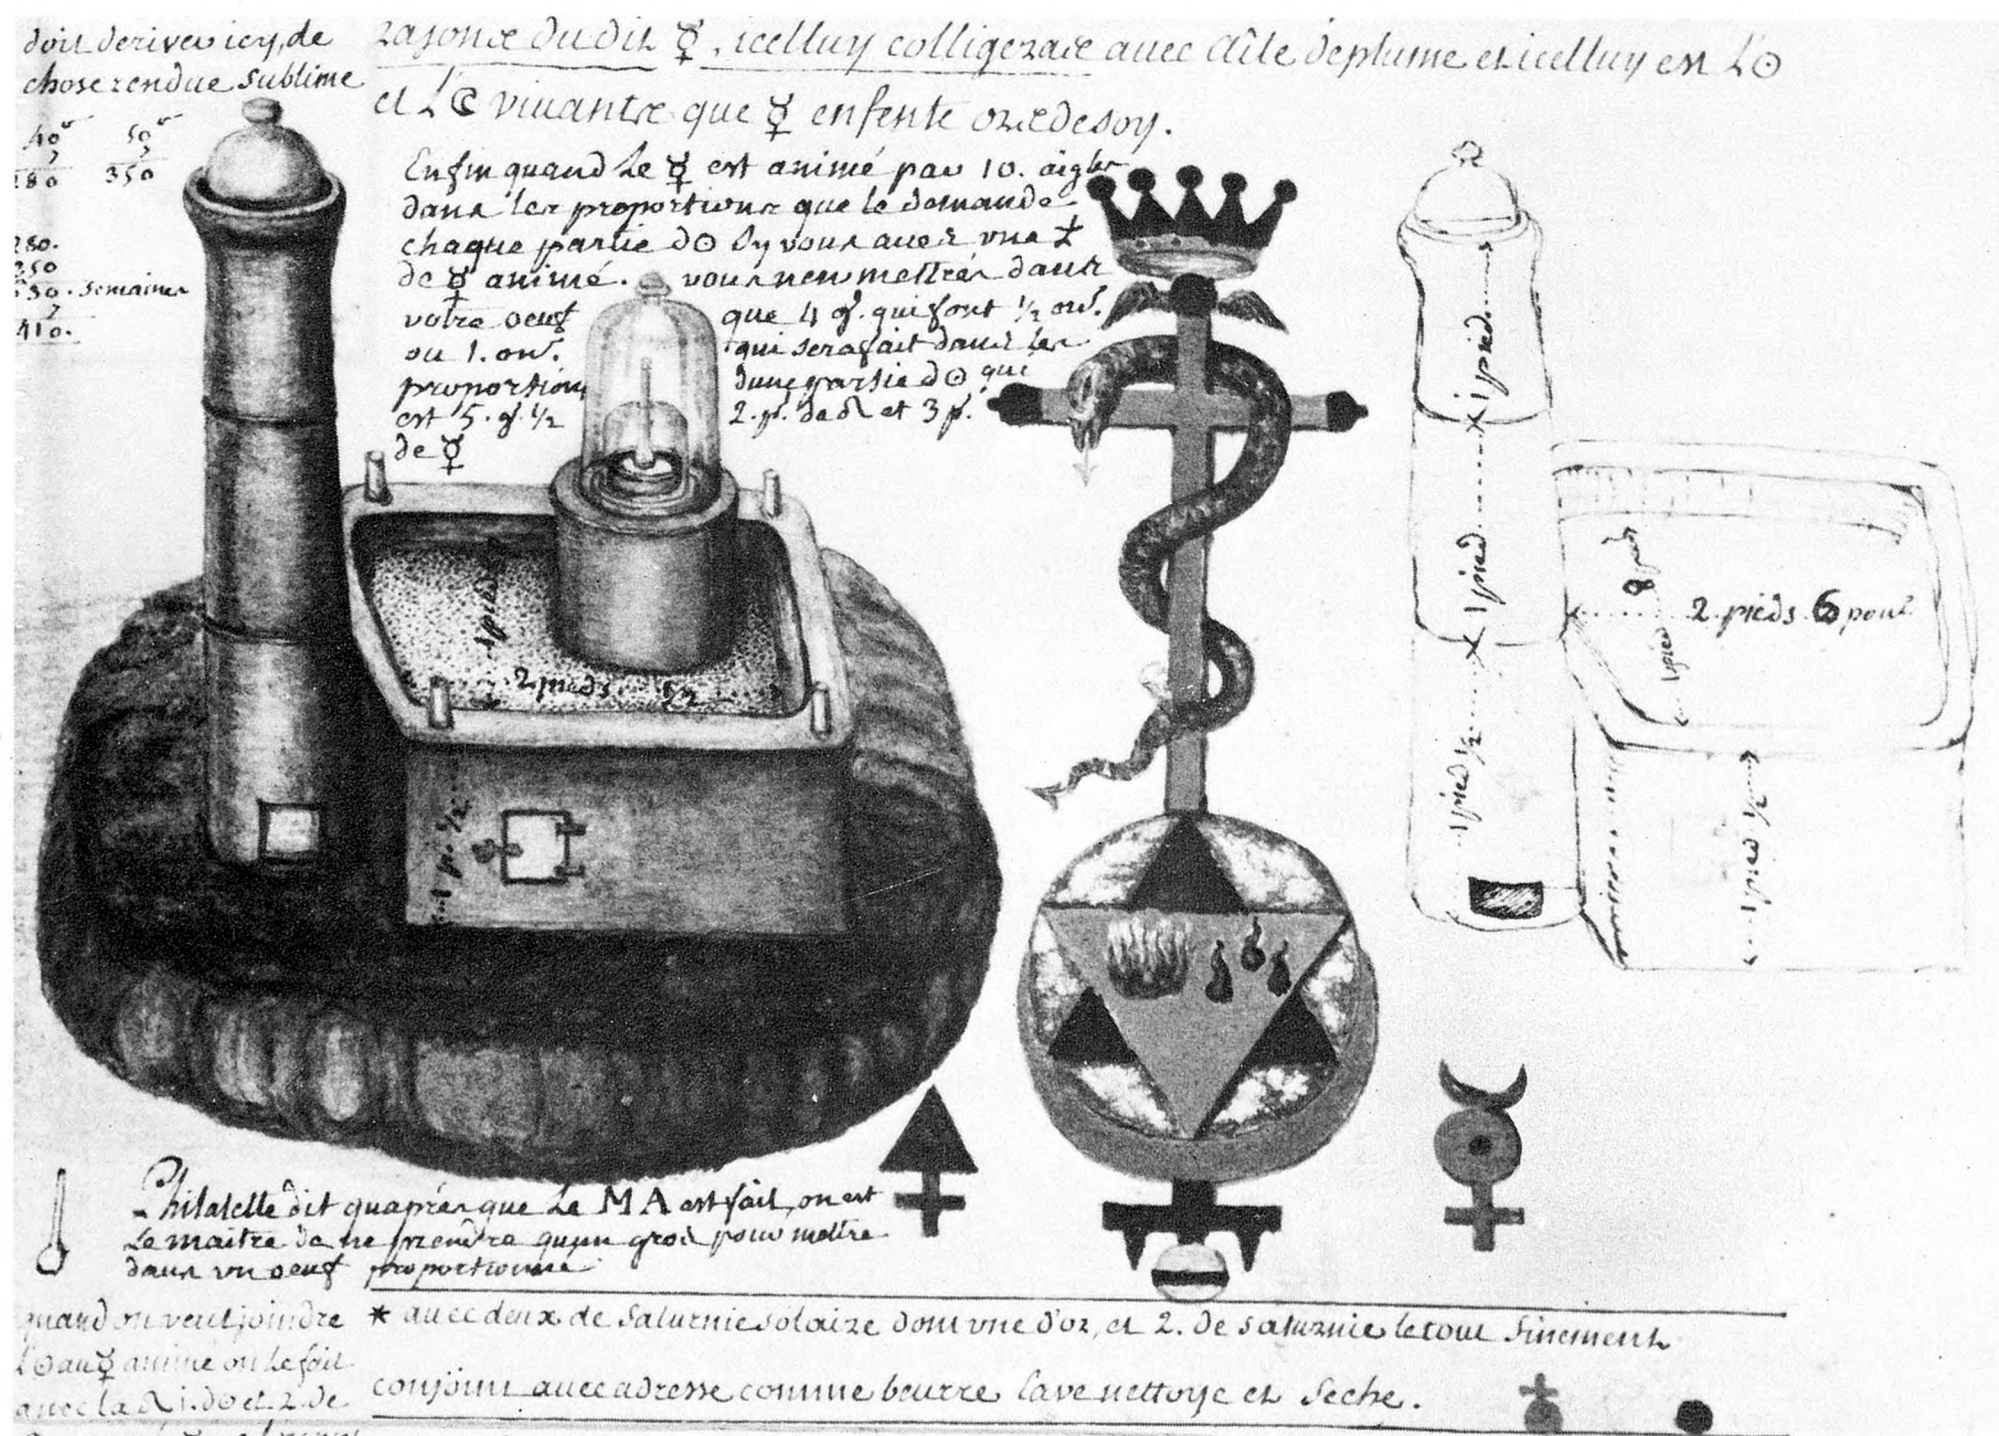 doit deriver icy, de
chose rendue sublime
40
7
280
50
7
350
280.
350
630. semaines
7
410.
rasonæ du dit ☿, icelluy colligeraæ avec aîle deplume et icelluy est L'☉
et L'☾ vivantæ que ☿ enfente oræ de soy.
Enfin quand Le ☿ est animé par 10. aigles
dans les proportions que le demande
chaque partie d☉ sy vous avez une
de ☿ animé. vous n'en mettrés dans
votre oeuf que 4 g. qui font ½ on.
ou 1. on. qui serafait dans les
proportions dune partie d☉ que
est 5. g. ½ 2. p. de et 3 p.
de ☿
1 pied
2 pieds ½
1 p. ½
1 pied
1 pied
1 pied ½
8 pieds
1 pied
2 pieds 6 pouc
1 pied ½
Philalette dit quaprés que Le MA est fait, on est
Le maitre de ne prendre quun gros pour mettre
dans un oeuf proportionné
quand on veut joindre
l'☉ au ☿ animé on Le fait
avec la 1. d☉ et 2. de
* avec deux de saturnie solaire dont vne d'or, et 2. de saturnie le tout finement
conjoint avec adresse comme beurre lave nettoye et seche.